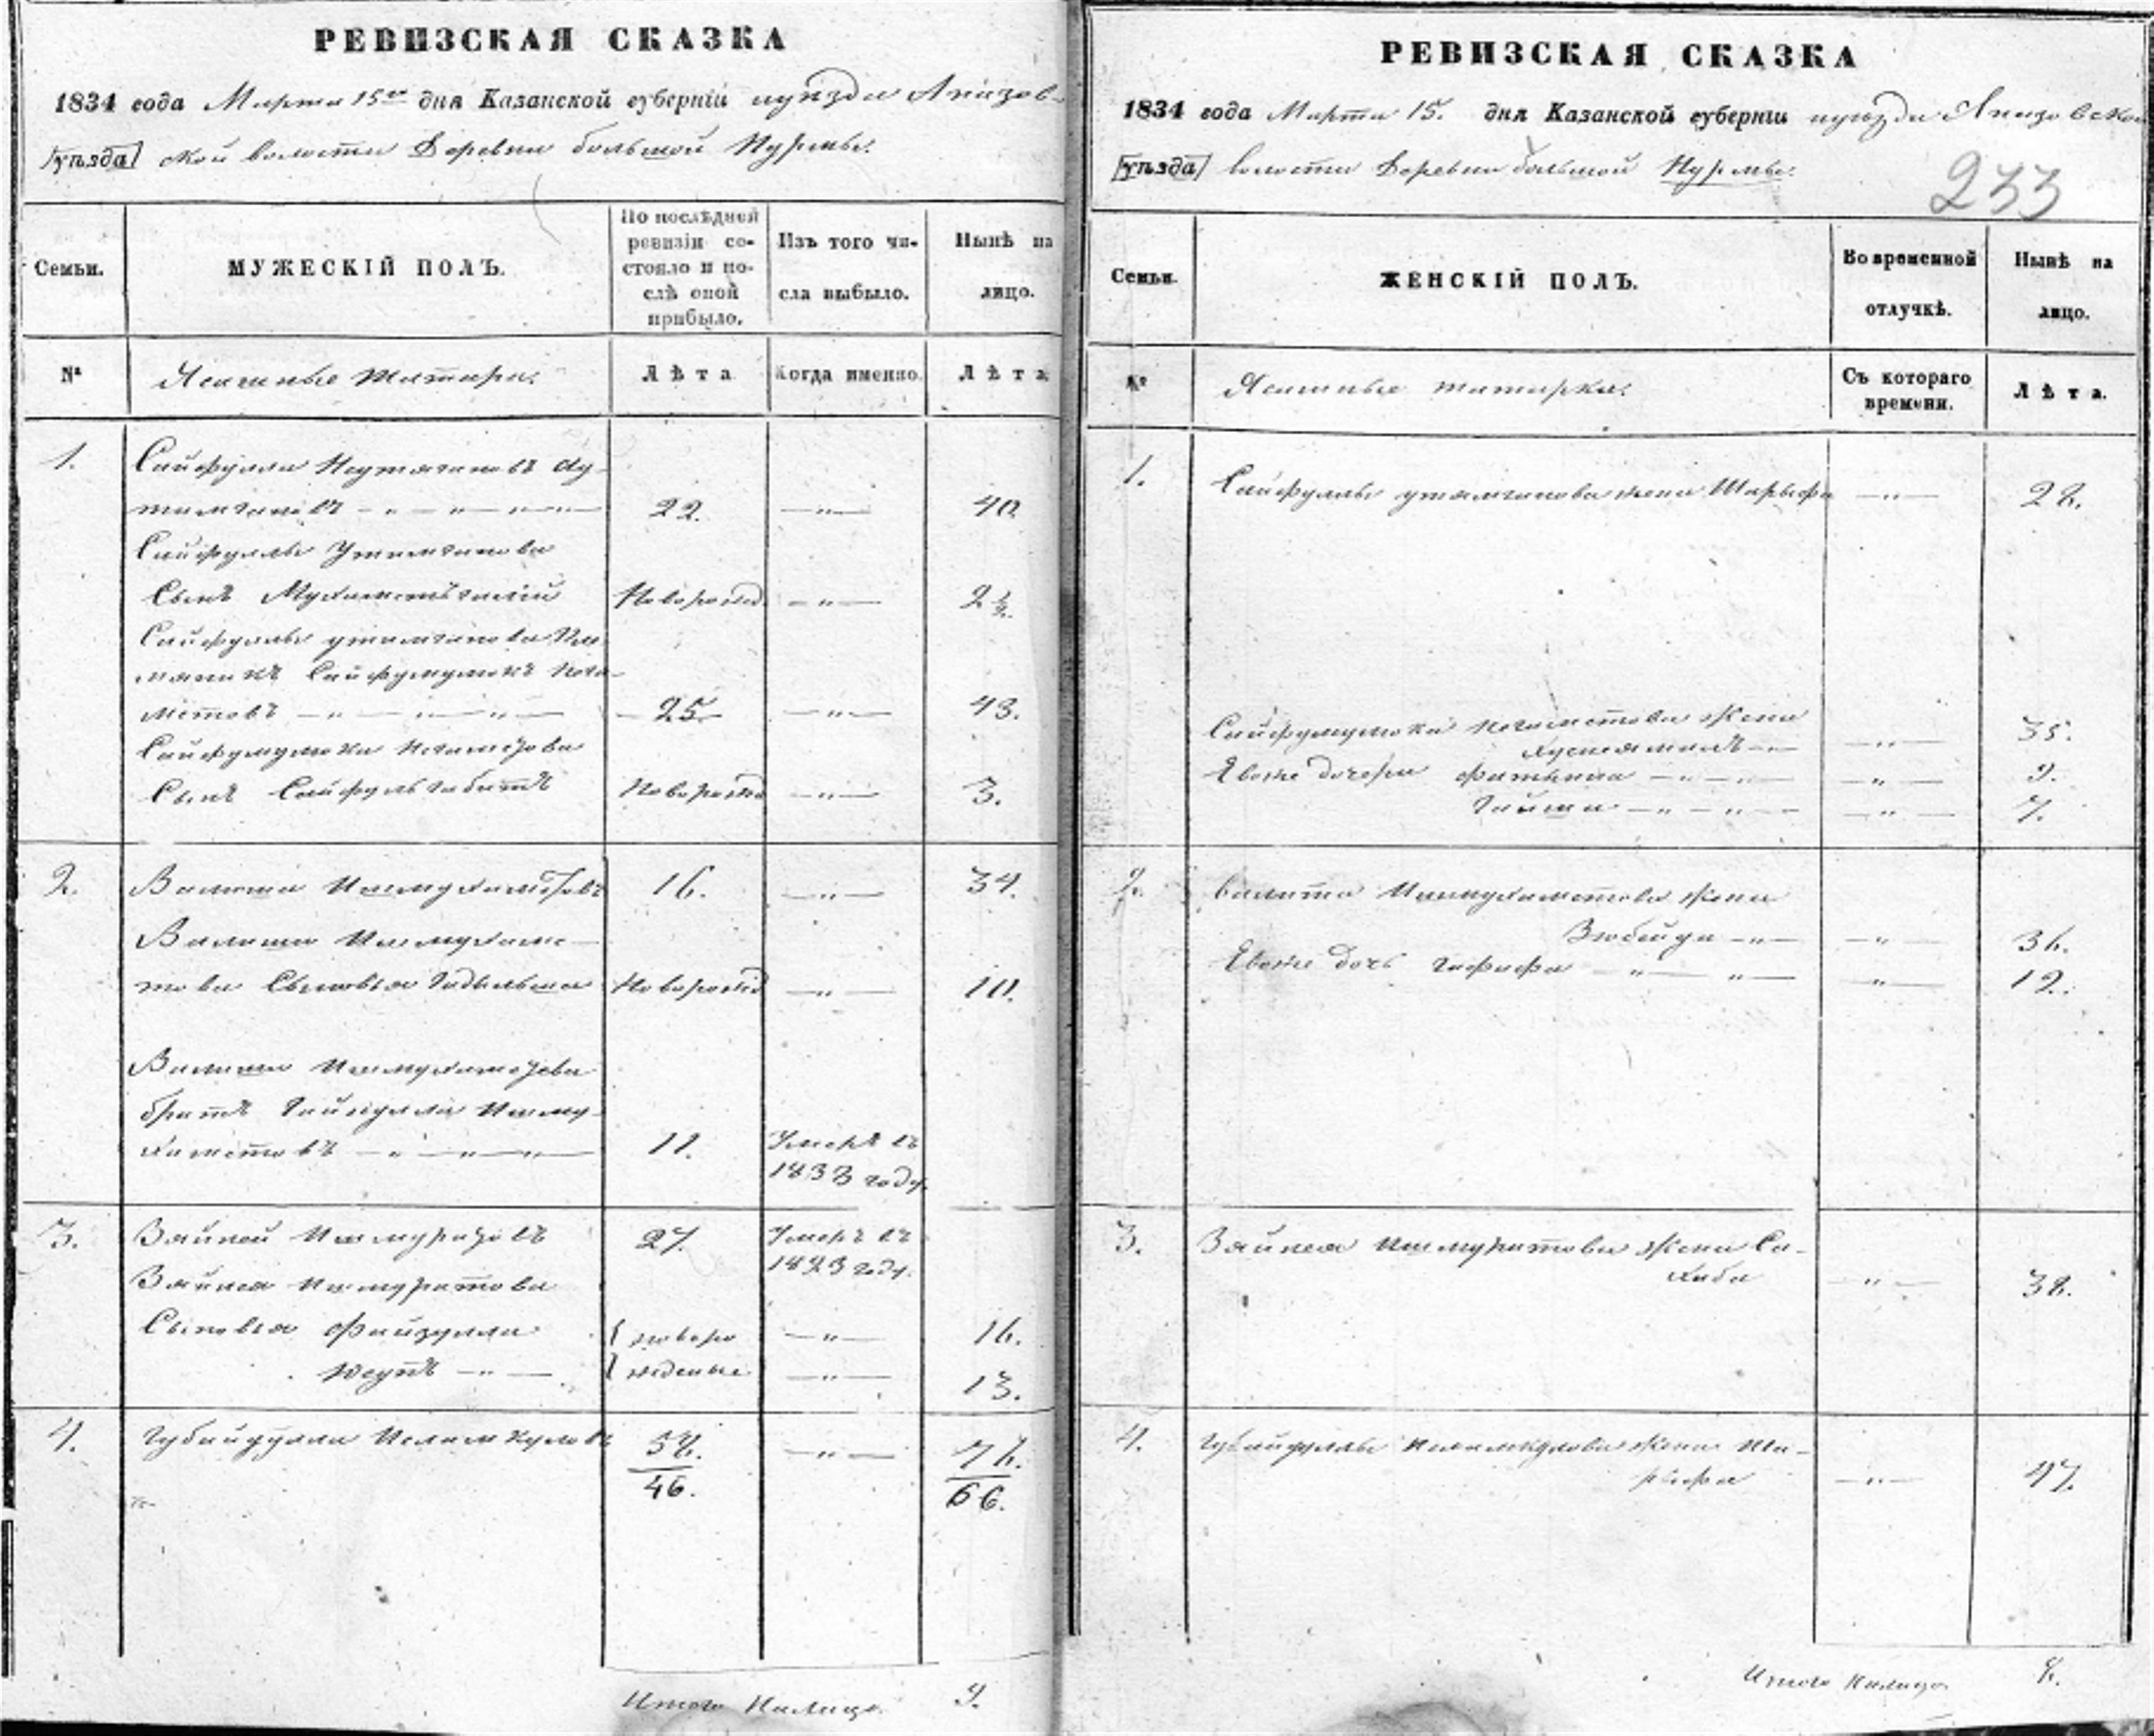 РЕВИЗСКАЯ СКАЗКА
1834 года Марта 15го дня Казанской губерніи уѣзда
уѣзда ской волости Деревни большой Нурмы.
Семьи.
МУЖЕСКІЙ ПОЛЪ.
По послѣдней
ревизіи со-
стояло и по-
слѣ оной
прибыло.
Изъ того чи-
сла выбыло.
Нынѣ на
лицо.
№
Ясашные Татара.
Лѣта
Когда именно.
Лѣта
1.
Сайфулла
22. —"— 40
Сайфуллы Утямганова
Сынъ Новорожд —"— 2½.
Сайфуллы утямганова Пле
мяникъ Сайфумулюкъ Нега-
метовъ —"— 25 —"— 43.
Сайфумулюка Негаметова
Сынъ Новорожд —"— 3.
2. Валиша Ишмухаметовъ 16. —"— 34.
Валиши Ишмухаме-
това Сыновья Новорожд —"— 10.
Валиши Ишмухаметова
братъ Ишму-
хаметовъ —"— 11. Умеръ въ
1833 году.
3. Зяйней Ишмуратовъ 27. Умеръ въ
1823 году.
Зяйнея Ишмуратова
Сыновья Файзулла { новоро —"— 16.
Юсупъ —"— { жденные —"— 13.
4. Губайдулла Ислямкуловъ 58. —"— 76.
46. 66.
Итого Налицо. 9.
РЕВИЗСКАЯ СКАЗКА
1834 года Марта 15. дня Казанской губерніи уѣзда
уѣзда волости Деревни большой Нурмы.
233
Семьи.
ЖЕНСКІЙ ПОЛЪ.
Во временной
отлучкѣ.
Нынѣ на
лицо.
№
Ясашные татарки.
Съ котораго
времени.
Лѣта.
1. Сайфуллы утямганова жена Шарыфа —"— 28.
Сайфумулюка Негаметова жена
—"— 35.
Евоже дочери —"— 9.
Гайша —"— 7.
2. Валиша Ишмухаметова жена
Зюбайда —"— 36.
Евоже дочь Гафифа —"— 12.
3. Зяйнея Ишмуратова жена Са-
хиба —"— 38.
4. Губайдуллы Ислямкулова жена Ша-
рыфа —"— 47.
Итого Налицо. 8.